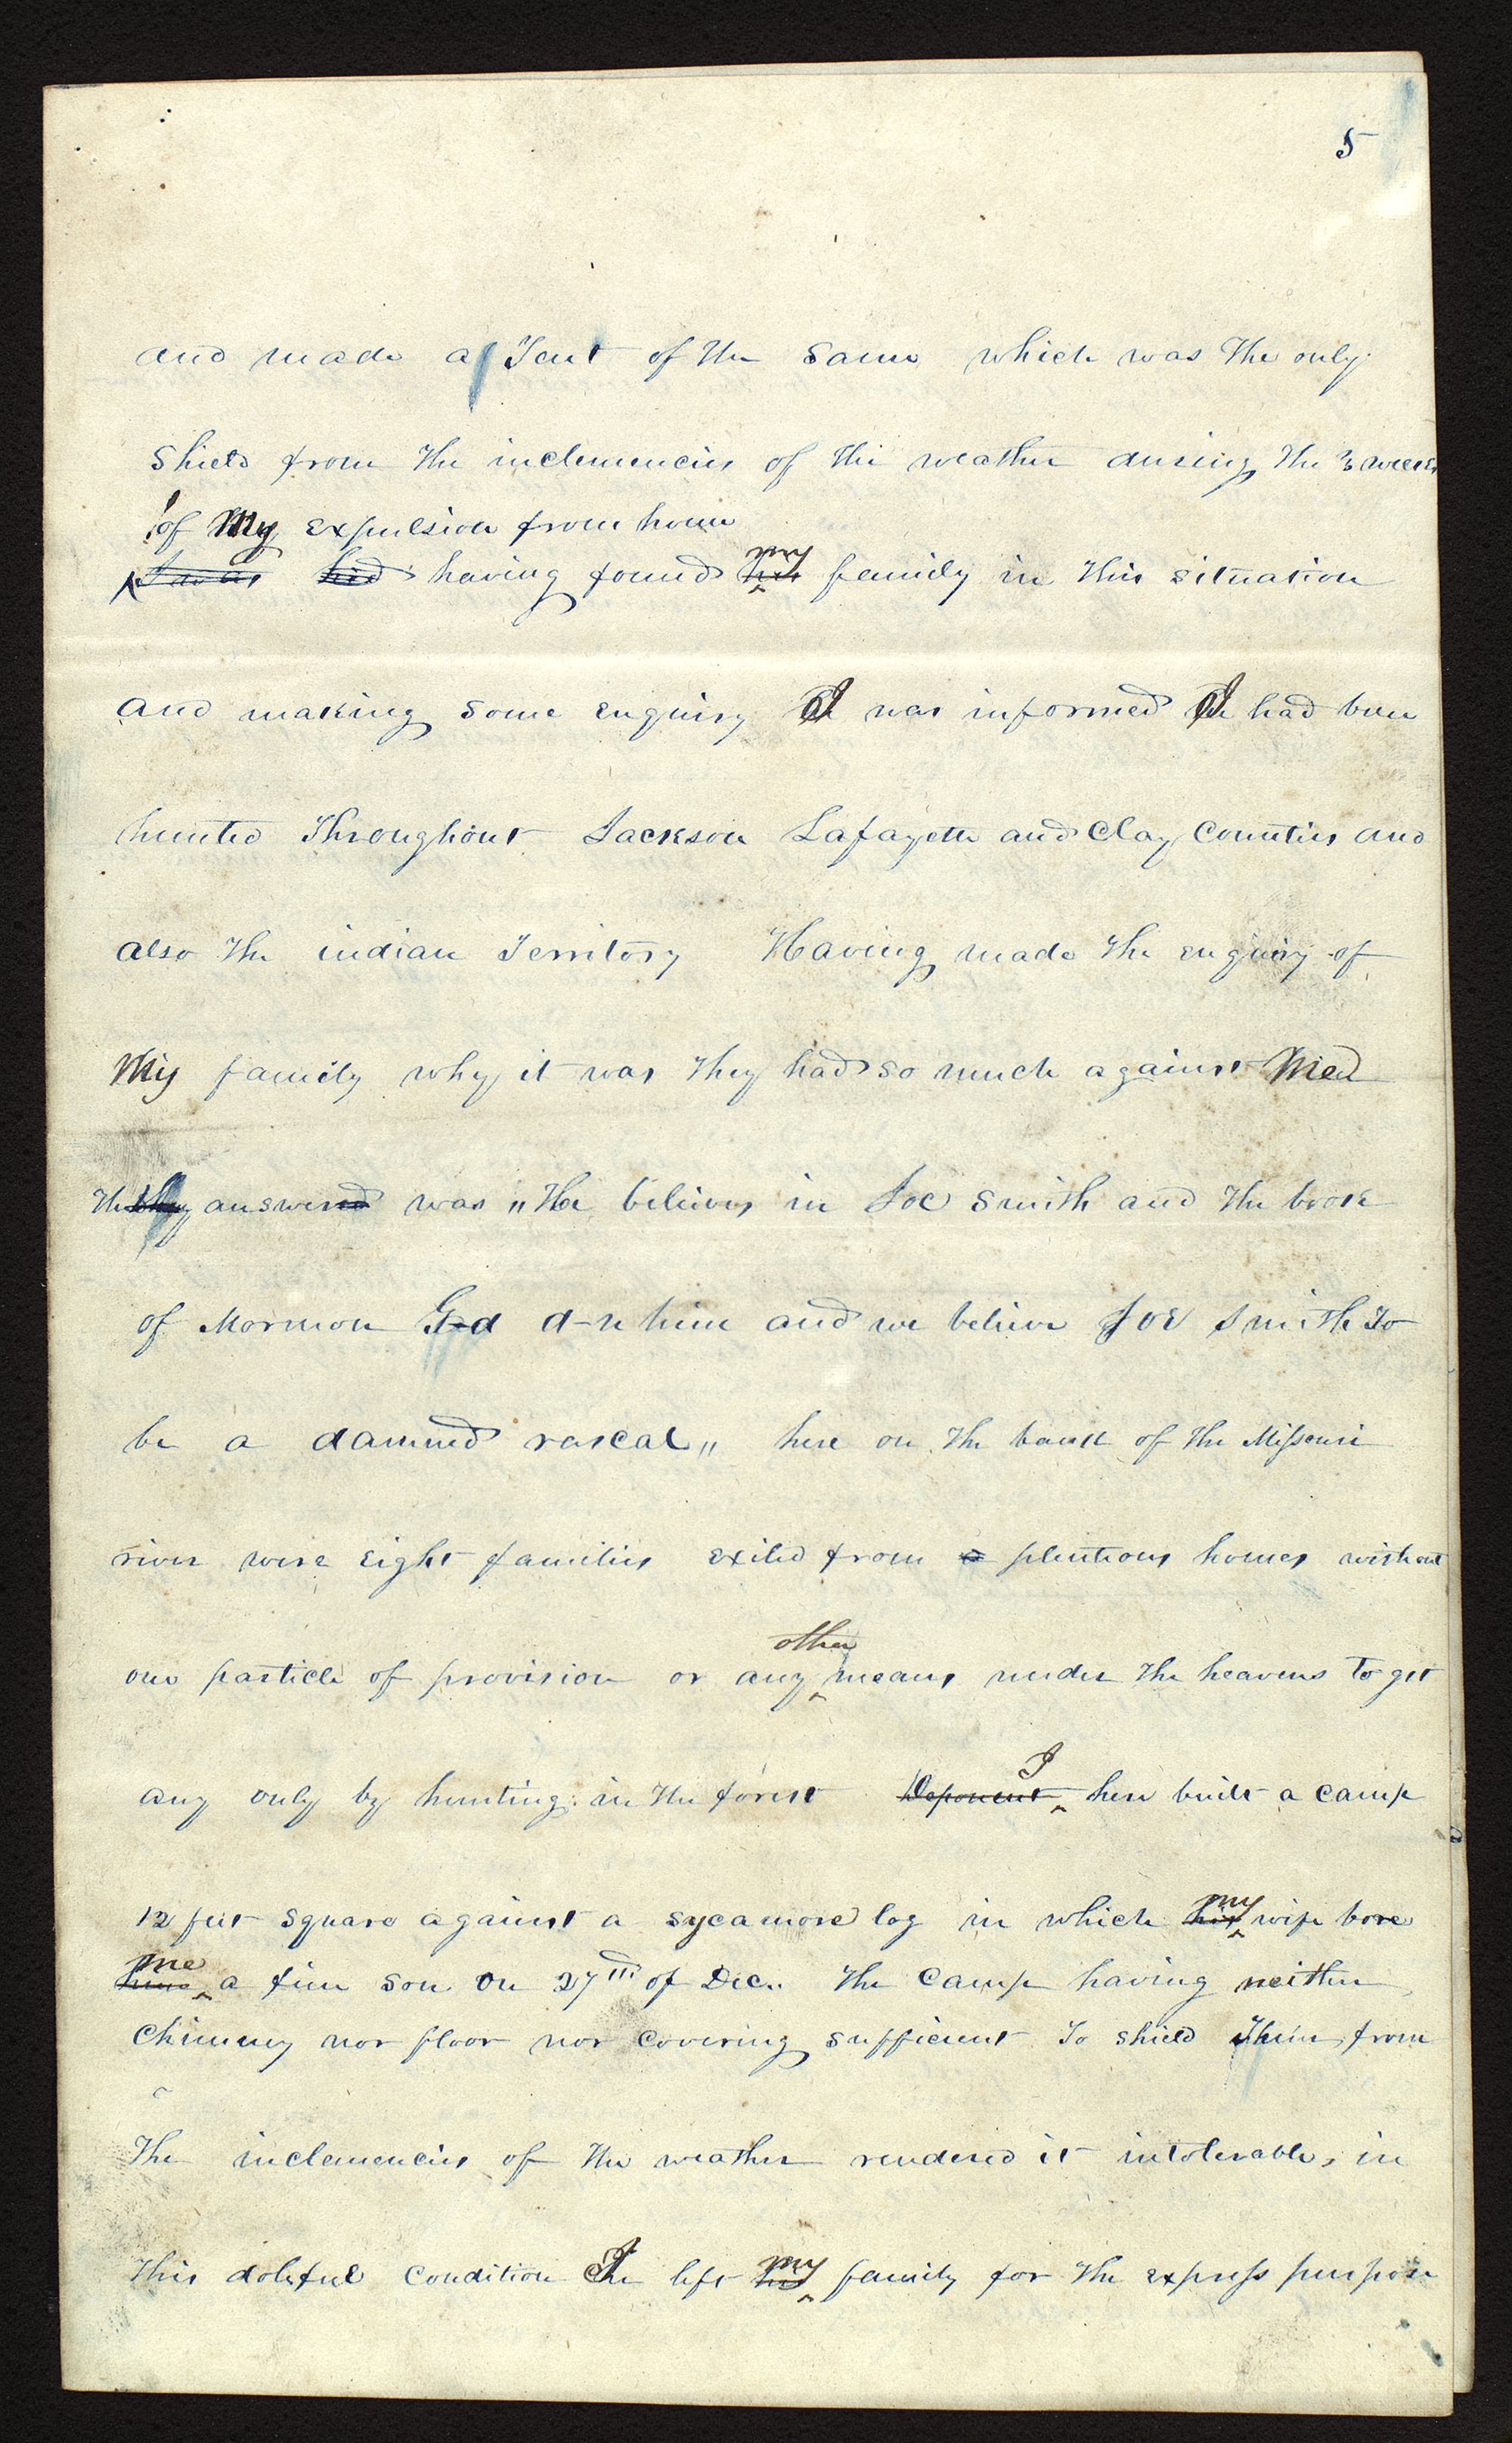 5
and made a Tent of the same which was the only
shield from the inclemencies of the weather during the 3 weeks
of My expulsion from home
I was hid having found his my family in this situation
and making some enquiry I was informed I had been
hunted Throughout Jackson Lafayette and Clay Counties and
also the indian Territory Having made the enquiry of
My family why it was they had so much against Me
The they answered was "He believes in Joe Smith and the book
of Mormon G-d d-n him and we believe Joe Smith to
be a damned rascal" here on the bank of the Missouri
river were eight families exiled from a plenteous homes without
one particle of provision or any other means under the heavens to get
any only by hunting in the forest Deponent I here built a camp
12 feet square against a sycamore log in which his my wife bore
him me a fine son on 27th of Dec. the camp having neither
chimney nor floor nor covering sufficient to shield them from
the inclemencies of the weather rendered it intolerable, in
this doleful condition I left his my family for the express purpose